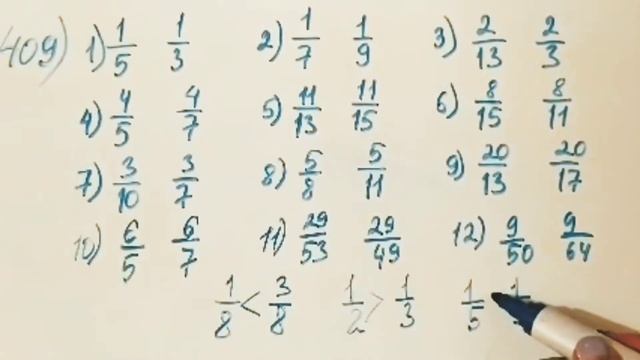 409) 1) 1/5 1/3 2) 1/7 1/9 3) 2/13 2/3
4) 4/5 4/7 5) 11/13 11/15 6) 8/15 8/11
7) 3/10 3/7 8) 5/8 5/11 9) 20/13 20/17
10) 6/5 6/7 11) 29/53 29/49 12) 9/50 9/64
1/8 < 3/8 1/2 > 1/3 1/5 1/